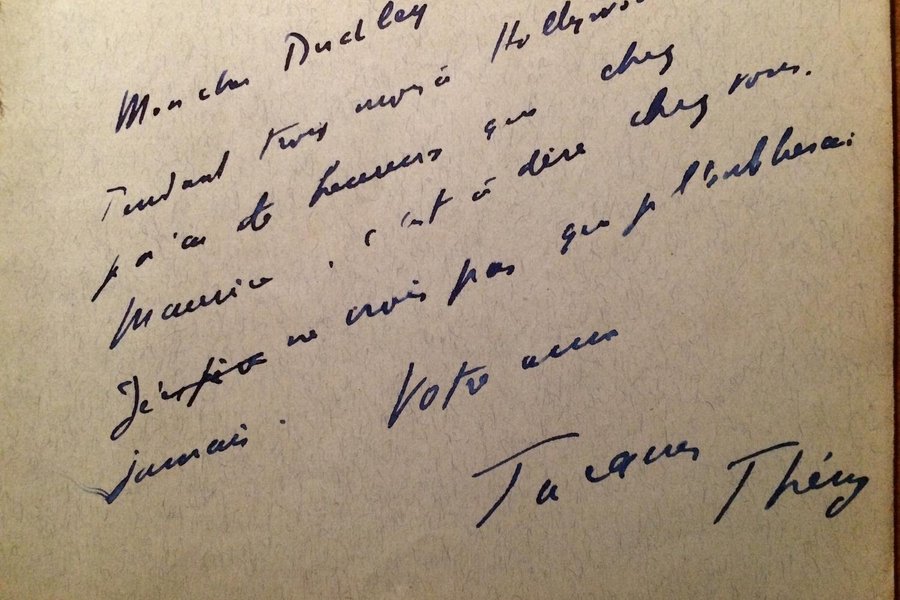 Mon cher Dudley
Pendant trois mois à Hollywoo
je n'ai été heureux que chez
Maurice, c'est à dire chez vous.
Je ne crois pas que je l'oublierai
jamais. Votre ami
Jacques Théry